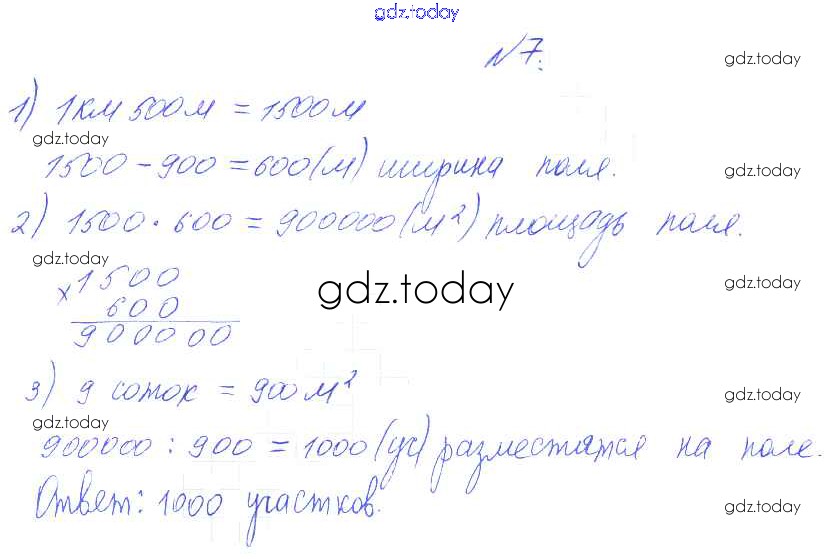 gdz.today
N7.
gdz.today
1) 1км 500м = 1500м
gdz.today
1500 - 900 = 600(м) ширина поля.
gdz.today
2) 1500 · 600 = 900000(м²) площадь поля.
gdz.today
× 1500
gdz.today
gdz.today
600
900000
3) 9 соток = 900м²
gdz.today
gdz.today
900000 : 900 = 1000 (уч) разместятся на поле.
Ответ: 1000 участков.
gdz.today